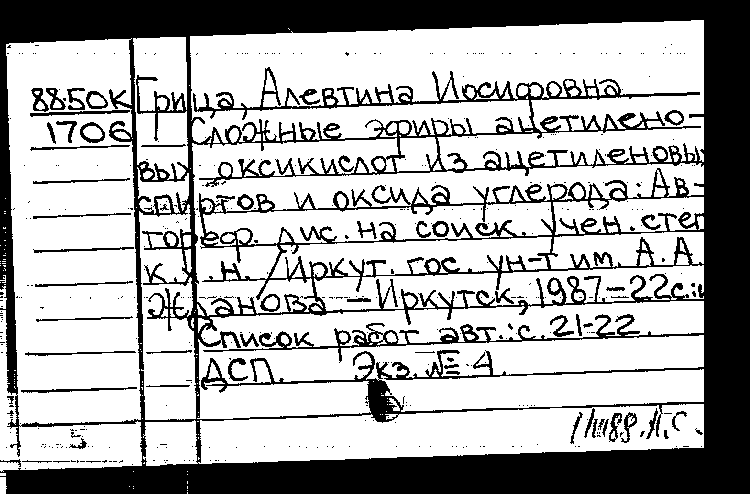 88.50К Грица, Алевтина Иосифовна.
1706 Сложные эфиры ацетилено-
вых оксикислот из ацетиленовы
спиртов и оксида углерода: Ав-
тореф. дис. на соиск. учен. степ
к.х.н. / Иркут. гос. ун-т им. А.А.
Жданова. – Иркутск, 1987. – 22с.:и
Список работ авт.: с. 21-22.
ДСП. Экз. № 4.
5